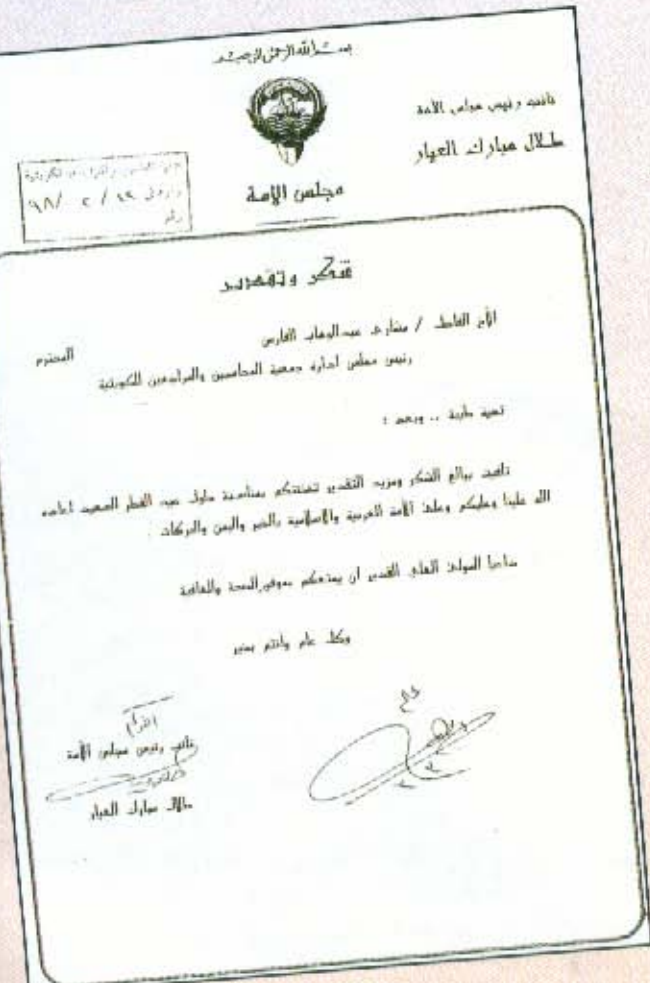 بسم الله الرحمن الرحيم
نائب رئيس مجلس الأمة
طلال مبارك العيار
مجلس الامة
جمعية المحاسبين والمراجعين الكويتية
٩٨/ ٢ /
رقم
شكر وتقدير
الأخ الفاضل / مشاري عبدالوهاب الفارس المحترم
رئيس مجلس ادارة جمعية المحاسبين والمراجعين الكويتية
تحية طيبة .. وبعد :
تلقيت ببالغ الشكر ومزيد التقدير تهنئتكم بمناسبة حلول عيد الفطر السعيد اعاده
الله علينا وعليكم وعلى الأمة العربية والاسلامية بالخير واليمن والبركات .
داعيا المولى العلي القدير ان يمتعكم بموفور الصحة والعافية
وكل عام وانتم بخير
نائب رئيس مجلس الأمة
طلال مبارك العيار